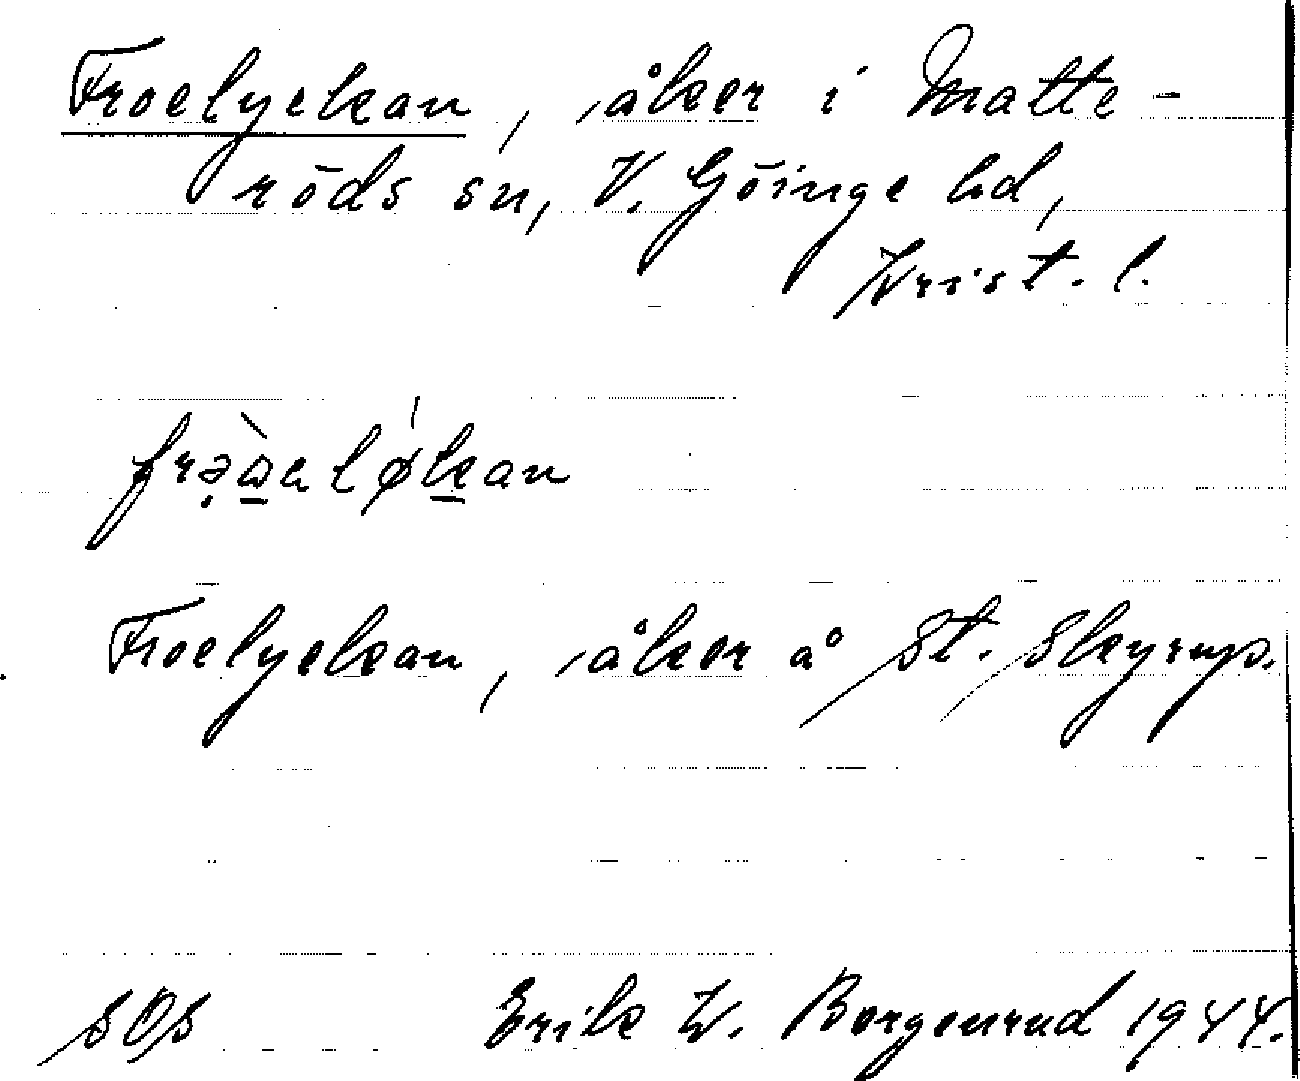 Froelyckan, åker i Matte-
röds sn, V. Göinge hd,
Krist. l.
Froelyckan, åker å St. Skyrup.
SOS Erik W. Borgenrud 1944.